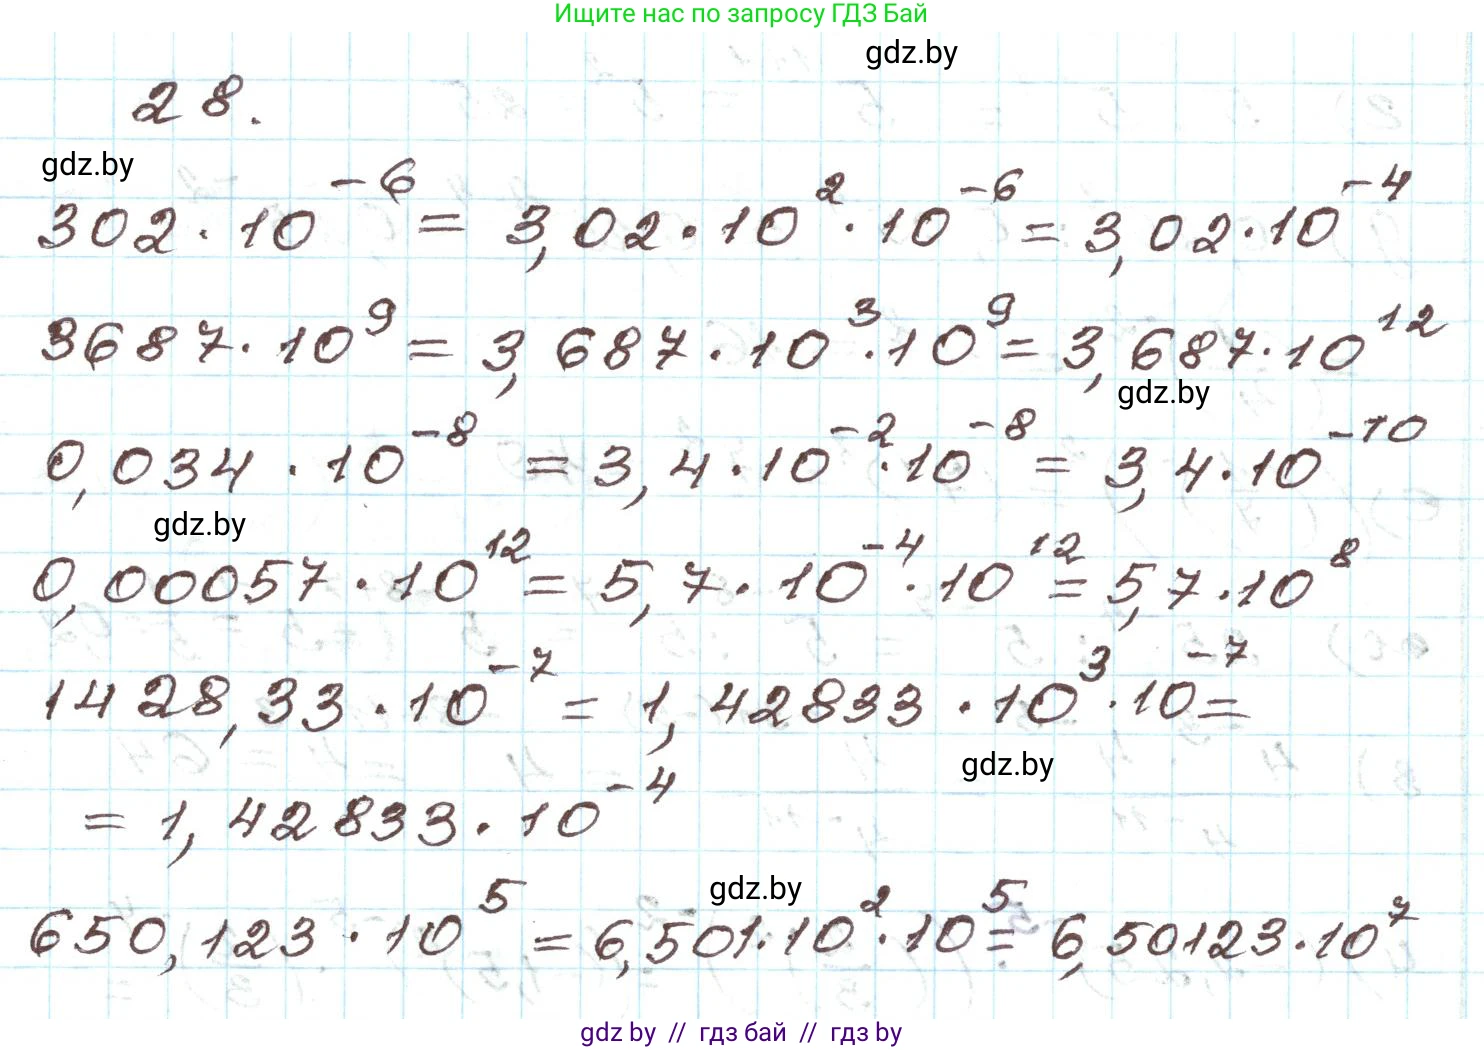 Ищите нас по запросу ГДЗ Бай
gdz.by
28.
gdz.by
302 · 10⁻⁶ = 3,02 · 10² · 10⁻⁶ = 3,02 · 10⁻⁴
3687 · 10⁹ = 3,687 · 10³ · 10⁹ = 3,687 · 10¹²
gdz.by
0,034 · 10⁻⁸ = 3,4 · 10⁻² · 10⁻⁸ = 3,4 · 10⁻¹⁰
gdz.by
0,00057 · 10¹² = 5,7 · 10⁻⁴ · 10¹² = 5,7 · 10⁸
1428,33 · 10⁻⁷ = 1,42833 · 10³ · 10⁻⁷ =
gdz.by
= 1,42833 · 10⁻⁴
gdz.by
650,123 · 10⁵ = 6,501 · 10² · 10⁵ = 6,50123 · 10⁷
gdz by // гдз бай // гдз by